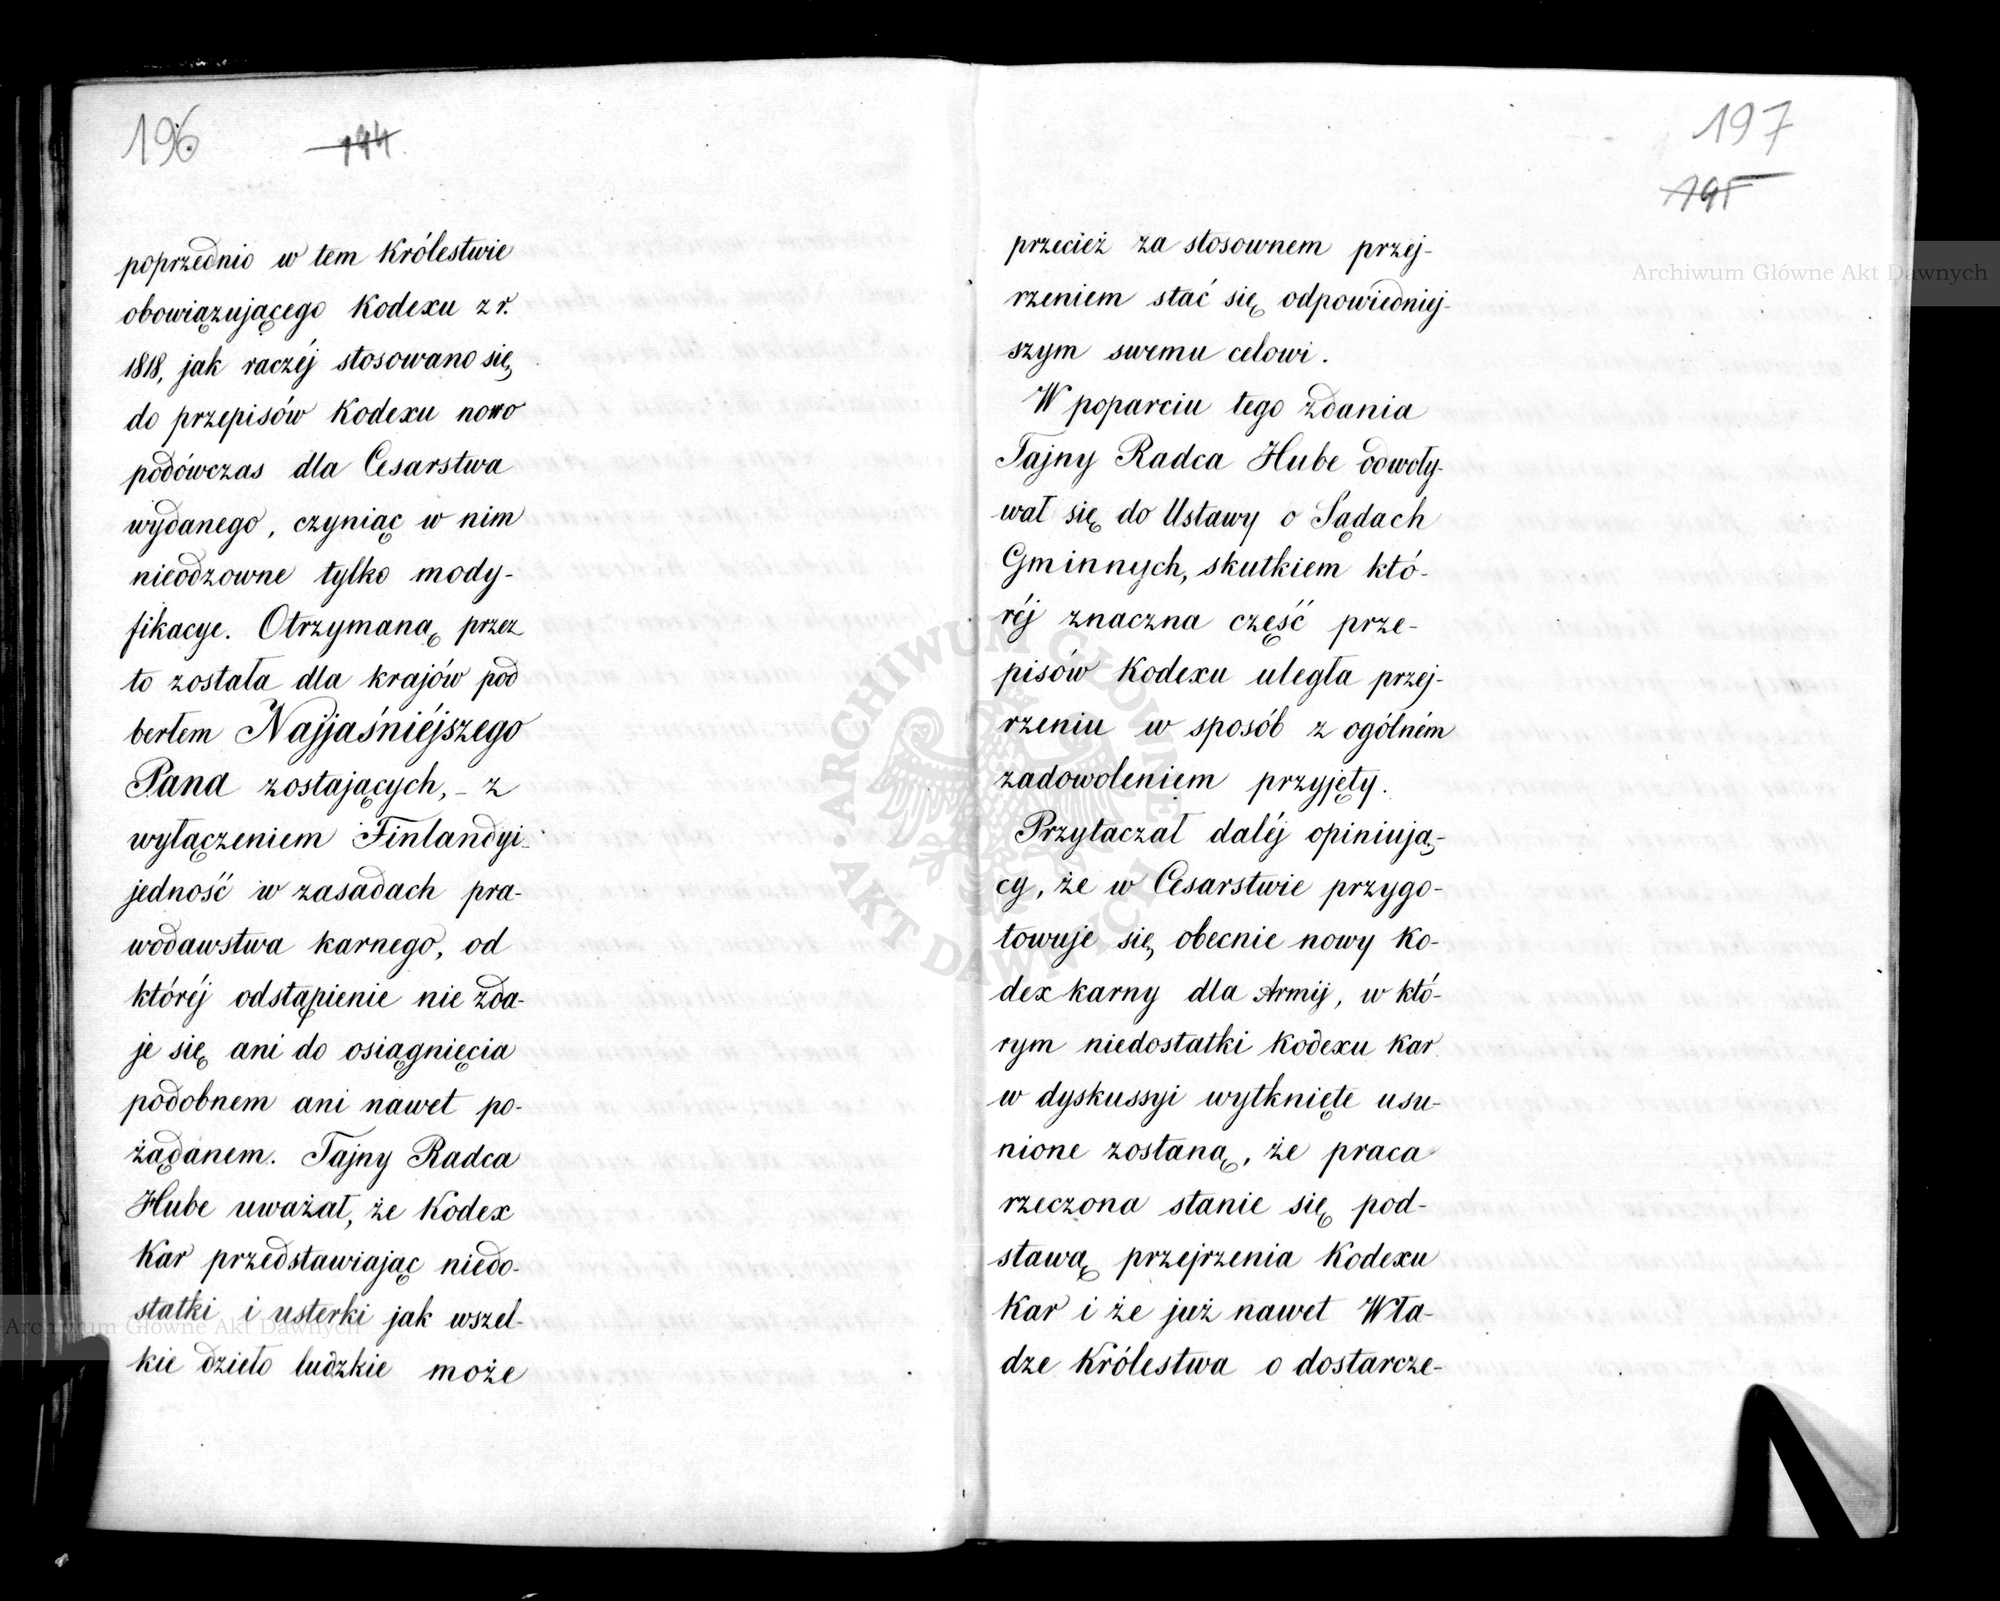 196 194
poprzednio w tem Królestwie
obowiązującego Kodexu z r.
1818, jak raczéj stosowano się
do przepisów Kodexu nowo
podówczas dla Cesarstwa
wydanego, czyniąc w nim
nieodzowne tylko mody-
fikacye. Otrzymaną przez
to została dla krajów pod
berłem Najjaśniéjszego
Pana zostających, - z
wyłączeniem Finlandyi -
jedność w zasadach pra-
wodawstwa karnego, od
któréj odstąpienie nie zda-
je się ani do osiągnięcia
podobnem ani nawet po-
żądanem. Tajny Radca
Hube uważał, że Kodex
Kar przedstawiając niedo-
statki i usterki jak wszel-
kie dzieło ludzkie może
197
195
przecież za stosownem przej-
rzeniem stać się odpowiedniej-
szym swemu celowi.
W poparciu tego zdania
Tajny Radca Hube odwoły-
wał się do Ustawy o Sądach
Gminnych, skutkiem któ-
réj znaczna część prze-
pisów Kodexu uległa przej-
rzeniu w sposób z ogólném
zadowoleniem przyjęty.
Przytaczał daléj opiniują-
cy, że w Cesarstwie przygo-
towuje się obecnie nowy Ko-
dex karny dla Armij, w któ-
rym niedostatki Kodexu Kar
w dyskussyi wytknięte usu-
nione zostaną, że praca
rzeczona stanie się pod-
stawą przejrzenia Kodexu
Kar i że już nawet Wła-
dze Królestwa o dostarcze-
Archiwum Główne Akt Dawnych
Archiwum Główne Akt Dawnych
ARCHIWUM GŁÓWNE
AKT DAWNYCH